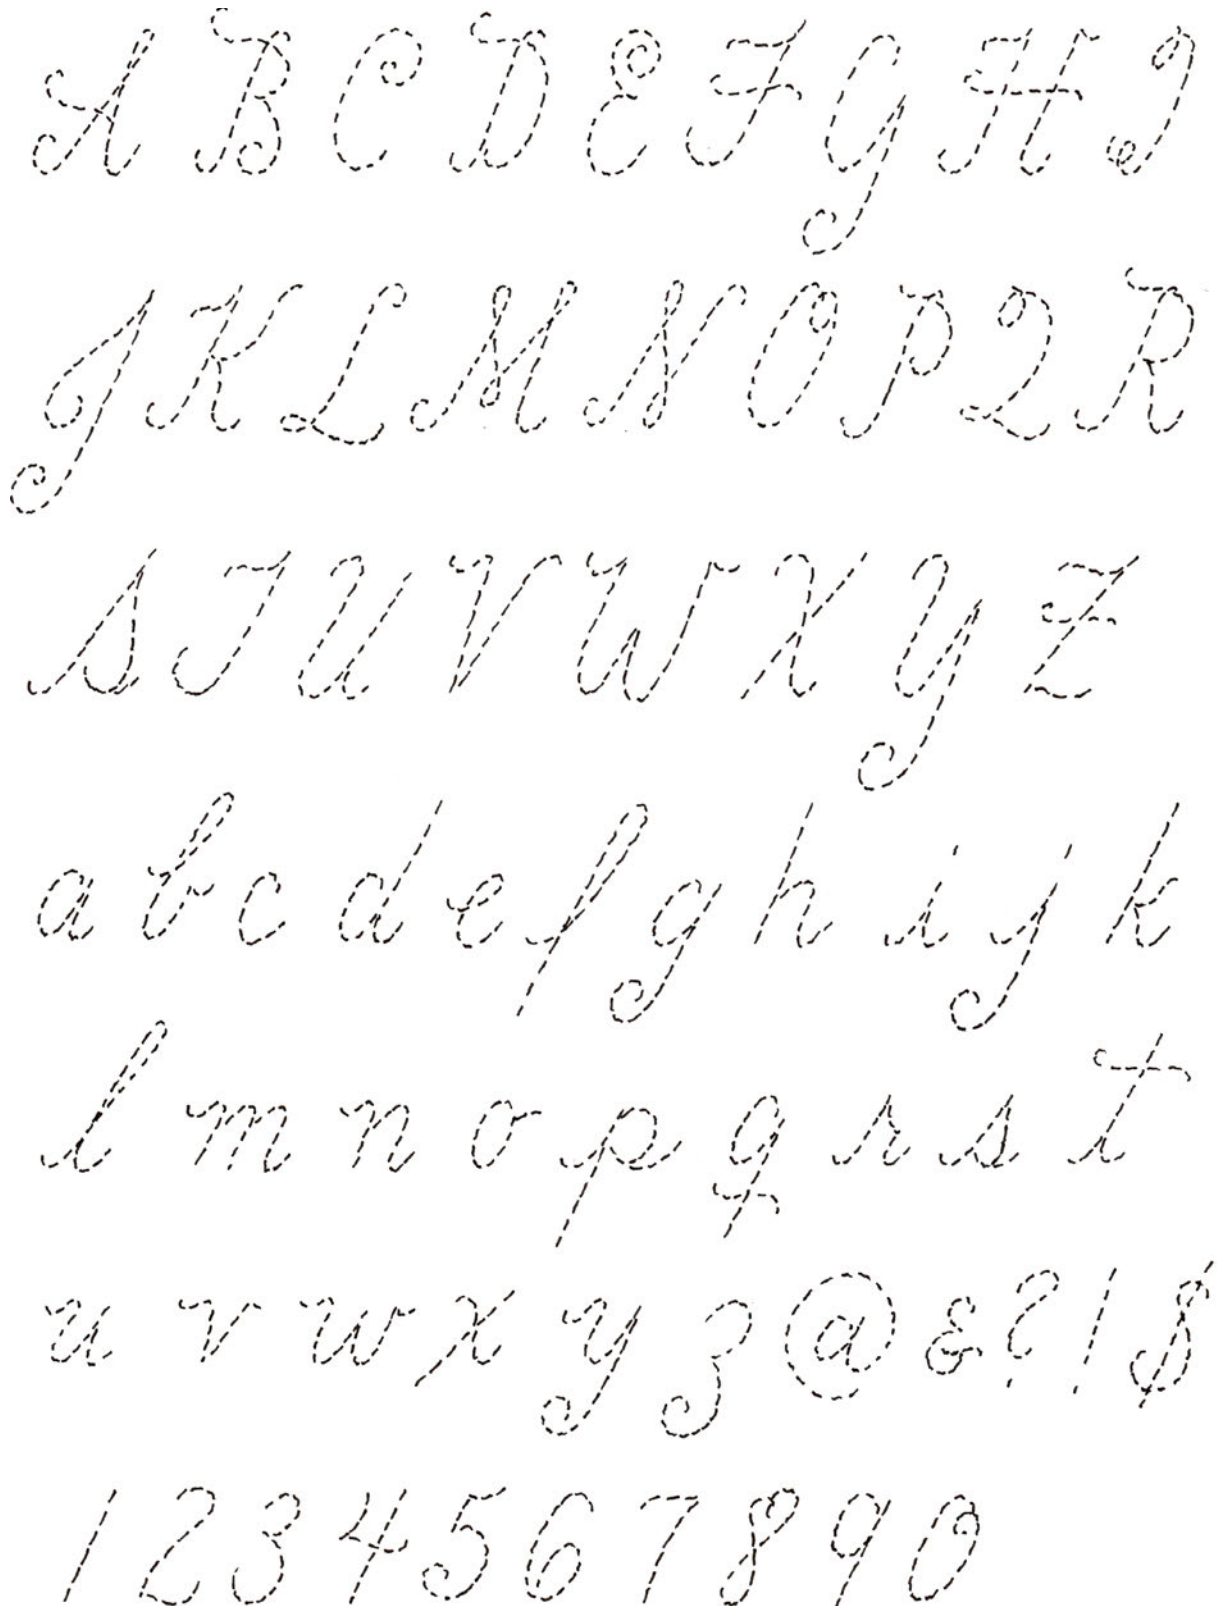 A B C D E F G H I
J K L M N O P Q R
S T U V W X Y Z
a b c d e f g h i j k
l m n o p q r s t
u v w x y z @ & ? ! $
1 2 3 4 5 6 7 8 9 0